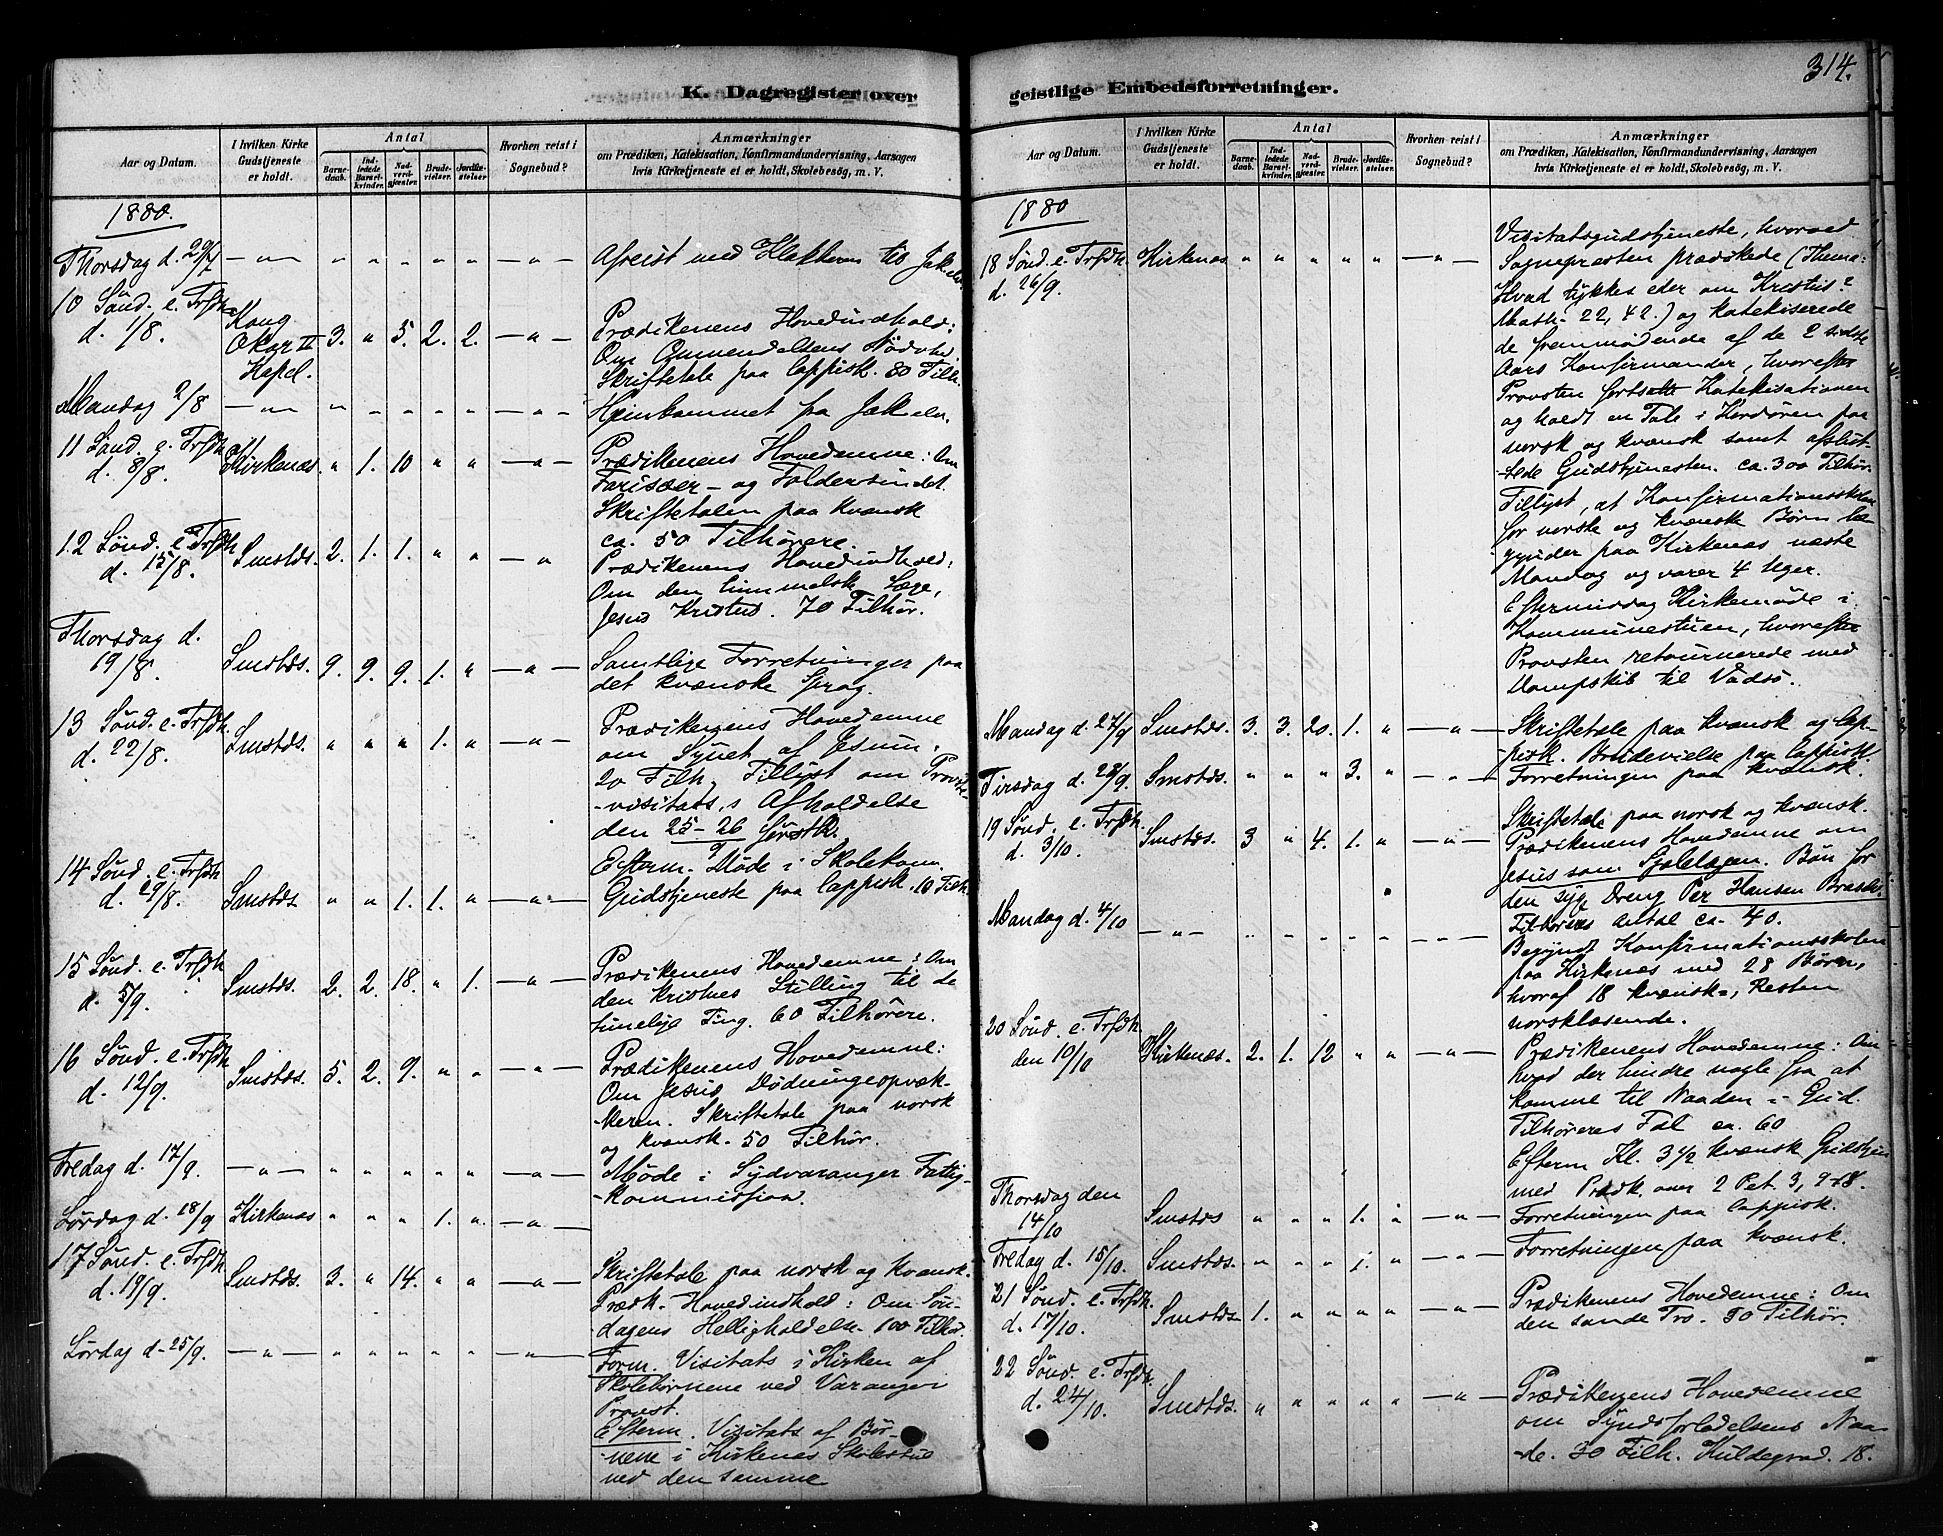 314.
K. Dagregister over
geistlige Embedsforretninger.
Aar og Datum.
I hvilken Kirke Gudstjeneste er holdt.
Antal
Barnedaab.
Indledede Barselkvinder.
Nadverdgjæster.
Brudevielser.
Jordfæstelser.
Hvorhen reist i Sognebud?
Anmærkninger
om Prædiken, Katekisation, Konfirmandundervisning, Aarsagen
hvis Kirketjeneste ei er holdt, Skolebesøg, m. V.
1880.
Thorsdag d. 29/7 — " — " " " " " — " — Afreist med Klokkeren til
10 Sønd. e. Trfdh.
d. 1/8. Kong Oscar II Kapel. 3. " 5. 2. 2. — " — Prædikenens Hovedindhold:
Om Omvendelsens Nødvd.
Skriftetale paa lappisk. 80 Tilh.
Mandag 2/8 — " — " " " " " — " — Heimkommet fra
11 Sønd. e. Trfdh
d. 8/8. Kirkenæs. " 1. 10 " " — " — Prædikenens Hovedemne: Om
Farisæer- og Toldersindet.
Skriftetalen paa kvænsk
ca. 50 Tilhørere.
12 Sønd. e. Trfdh
d. 15/8. Smstds. 2. 1. 1. " " — " Prædikenens Hovedindhold:
Om den himmelsk Læge,
Jesus Kristus. 70 Tilhør.
Thorsdag d.
19/8. Smstds. 9. 9. 9. 1. " — " — Samtlige Forretninger paa
det kvænske Sprog.
13 Sønd. e. Trfdh.
d. 22/8. Smstds. " " " 1. " — " — Prædikenens Hovedemne
om Synet af Jesum.
20 Tilh. Tillyst om Provste-
-visitats's Afholdelse
den 25-26
14 Sønd. e. Trfdh
d. 29/8. Smstds " " 1. 1. " — " — Efterm. Møde i Skolekom.
Gudstjeneste paa lappisk. 10 Tilh.
15 Sønd. e. Trfdh
d. 5/9. Smstds. 2. 2. 18. " 1. — " — Prædikenens Hovedemne: Om
den kristnes Stilling til de
timelige Ting. 60 Tilhørere.
16 Sønd. e. Trfdh
d. 12/9. Smstds. 5. 2. 9. " " — " — Prædikenens Hovedemne:
Om Jesus Dødningeopvæk-
keren. Skriftetale paa norsk
og kvænsk. 50 Tilhør.
Fredag d. 17/9. — " — " " " " " — " — Møde i Sydvaranger Fattig-
-kommission.
Lørdag d. 18/9 Kirkenæs " " " 1. " — " —
17 Sønd. e. Trfdh
d. 19/9. Smstds. 3. " 14. " " — " — Skriftetale paa norsk og kvænsk.
Prædk. Hovedindhold: Om Søn-
dagens Helligholdelse. 100 Tilhør.
Lørdag d. 25/9. — " — " " " " " — " — Form. Visitats i Kirken af
Skolebørnene ved Varanger
Provst.
Efterm. Visitats af Bør-
nene i Kirkenæs Skolestue
ved den samme
Aar og Datum.
I hvilken Kirke Gudstjeneste er holdt.
Antal
Barnedaab.
Indledede Barselkvinder.
Nadverdgjæster.
Brudevielser.
Jordfæstelser.
Hvorhen reist i Sognebud?
Anmærkninger
om Prædiken, Katekisation, Konfirmandundervisning, Aarsagen
hvis Kirketjeneste ei er holdt, Skolebesøg, m. V.
1880
18 Sønd. e. Trfdh.
d. 26/9. Kirkenæs " " " " " — " — Visitatsgudstjeneste, hvorved
Sognepræsten prædikede (Thema:
Hvad tykkes eder om Kristus?
Math. 22, 42.) og katekiserede
de fremmødende af de 2 sidste
Aars Konfirmander, hvorefter
Provsten fortsatte Katekisationen
og holdt en Tale i Kordøren paa
norsk og kvænsk samt afslut-
-tede Gudstjenesten. ca. 300 Tilhør.
Tillyst, at Konfirmationsskolen
for norske og kvænske Børn be-
gynder paa Kirkenæs næste
Mandag og varer 4 Uger.
Eftermiddag Kirkemøde i
Kommunestuen, hvorefter
Provsten retournerede med
Dampskib til Vadsø.
Mandag d. 27/9 Smstds. 3. 3. 20. 1. " — " — Skriftetale paa kvænsk og lap-
pisk. Brudevielse paa lappisk.
Tirsdag d. 28/9. Smstds. " " " 3. " — " — Forretningen paa kvænsk.
19 Sønd. e. Trfdh.
d. 3/10. Smstds. 3 " 4. 1. " — " — Skriftetale paa norsk og kvænsk.
Prædikenens Hovedemne om
Jesus som Sjælelægen. Bøn for
den syge Dreng Per Hansen
Tilhøreres Antal ca. 40.
Mandag d. 4/10 — " — " " " " " — " — Begyndt Konfirmationsskolen
paa Kirkenæs med 28 Børn,
hvoraf 18 kvænsk-, Resten
norsklæsende.
20 Sønd. e. Trfdh.
den 10/10 Kirkenæs. 2. 1. 12 " " — " — Prædikenens Hovedemne: Om
hvad der hindre nogle fra at
komme til Naaden i Gud.
Tilhøreres Tal ca. 60
Efterm Kl. 3 1/2 kvænsk Gudstjen
med Prædk. over 2 Pet. 3, 9-18.
Thorsdag den
14/10 Smstds " " " 1. " — " — Forretningen paa lappisk.
Fredag d. 15/10. Smstds. " " " 1. " — " — Forretningen paa kvænsk.
21 Sønd. e. Trfdh.
d. 17/10. Smstds. 1. " " " " — " — Prædikenens Hovedemne: Om
den sande Tro. 50 Tilhør.
22 Sønd. e. Trfdh.
d. 24/10. Smstds. " " " " " — " — Prædikenens Hovedemne
om Syndsforladelsens Naa-
-de. 30 Tilh. Kuldegrad. 18.